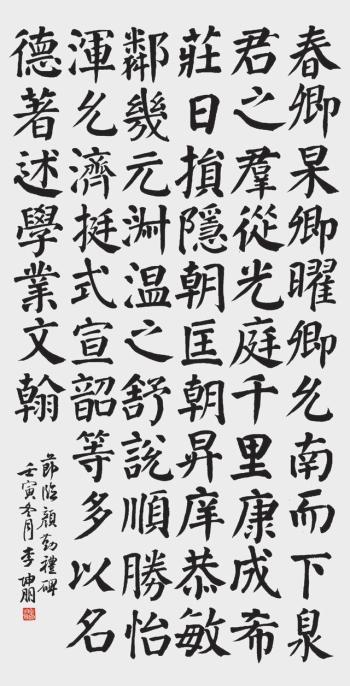 春卿杲卿曜卿允南而下泉
君之羣從光庭千里康成希
莊日損隱朝匡朝昇庠恭敏
鄰幾元淵温之舒說順勝怡
渾允濟挺式宣韶等多以名
德著述學業文翰
節臨顏勤禮碑
壬寅冬月李坤朋